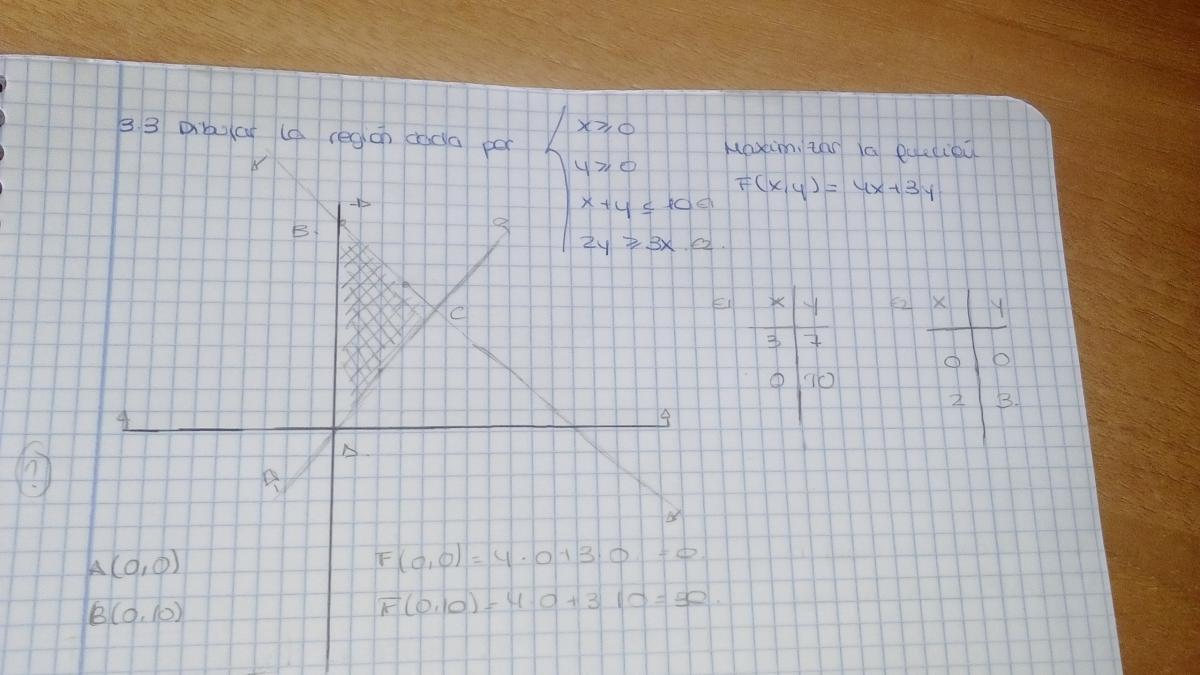 3.3 Dibujar la región dada por
x≥0
y≥0
x+y≤10
2y≥3x
Maximizar la función
F(x,y)= 4x+3y
B.
C
x y
3 7
0 10
x y
0 0
2 3.
?
A(0,0)
F(0,0)=4·0+3·0=0.
B(0,10)
F(0,10)=4·0+3·10=30.